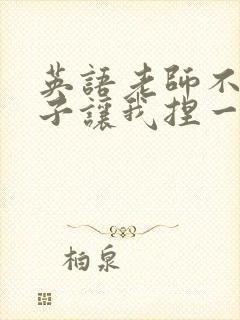 英語老師不
子讓我捏一
柏泉